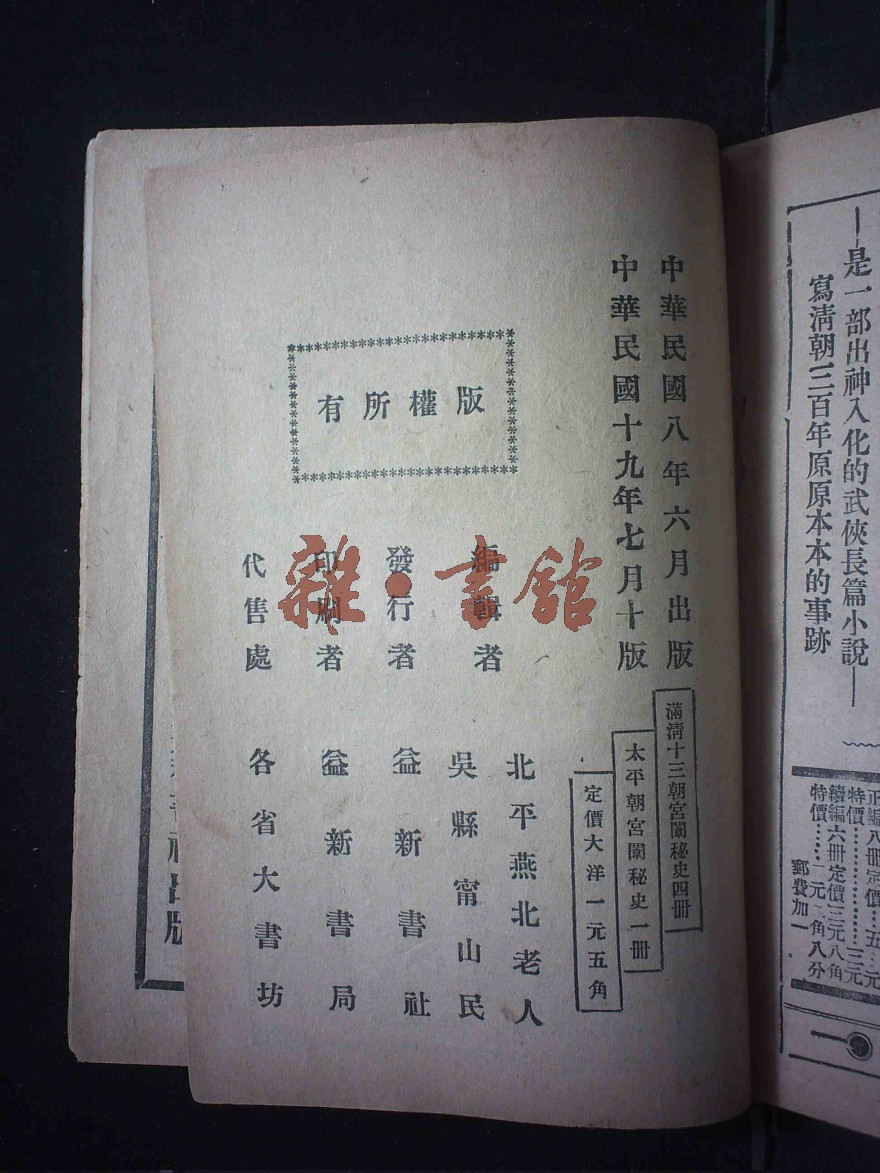 中華民國八年六月出版
中華民國十九年七月十版
滿清十三朝宮闈秘史四冊
太平朝宮闈秘史一冊
定價大洋一元五角
版權所有
編輯者
北平燕北老人
吳縣甯山民
發行者
益新書社
印刷者
益新書局
代售處
各省大書坊
雜·書館
—是一部出神入化的武俠長篇小說—
寫清朝三百年原原本本的事跡
正編八冊定價…五…元
特價…………………三元
續編六冊定價三元八角
特價……一元二角八分
郵費加一
出版